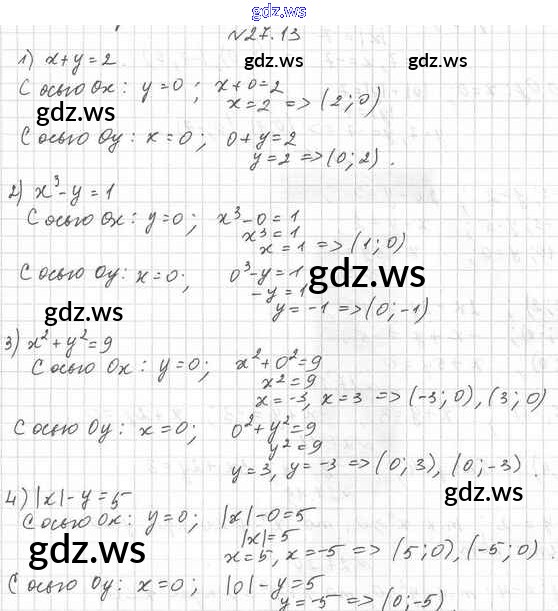 gdz.ws
№27.13
1) x+y=2
С осью Ox: y=0; x+0=2
x=2 => (2;0)
С осью Oy: x=0; 0+y=2
y=2 => (0;2).
2) x³-y=1
С осью Ox: y=0; x³-0=1
x³=1
x=1 => (1;0)
С осью Oy: x=0; 0³-y=1
-y=1
y=-1 => (0;-1)
3) x²+y²=9
С осью Ox: y=0; x²+0²=9
x²=9
x=-3, x=3 => (-3;0), (3;0)
С осью Oy: x=0; 0²+y²=9
y²=9
y=3, y=-3 => (0;3), (0;-3).
4) |x|-y=5
С осью Ox: y=0; |x|-0=5
|x|=5
x=5, x=-5 => (5;0), (-5;0).
С осью Oy: x=0; |0|-y=5
y=-5 => (0;-5).
gdz.ws
gdz.ws
gdz.ws
gdz.ws
gdz.ws
gdz.ws
gdz.ws
gdz.ws
gdz.ws